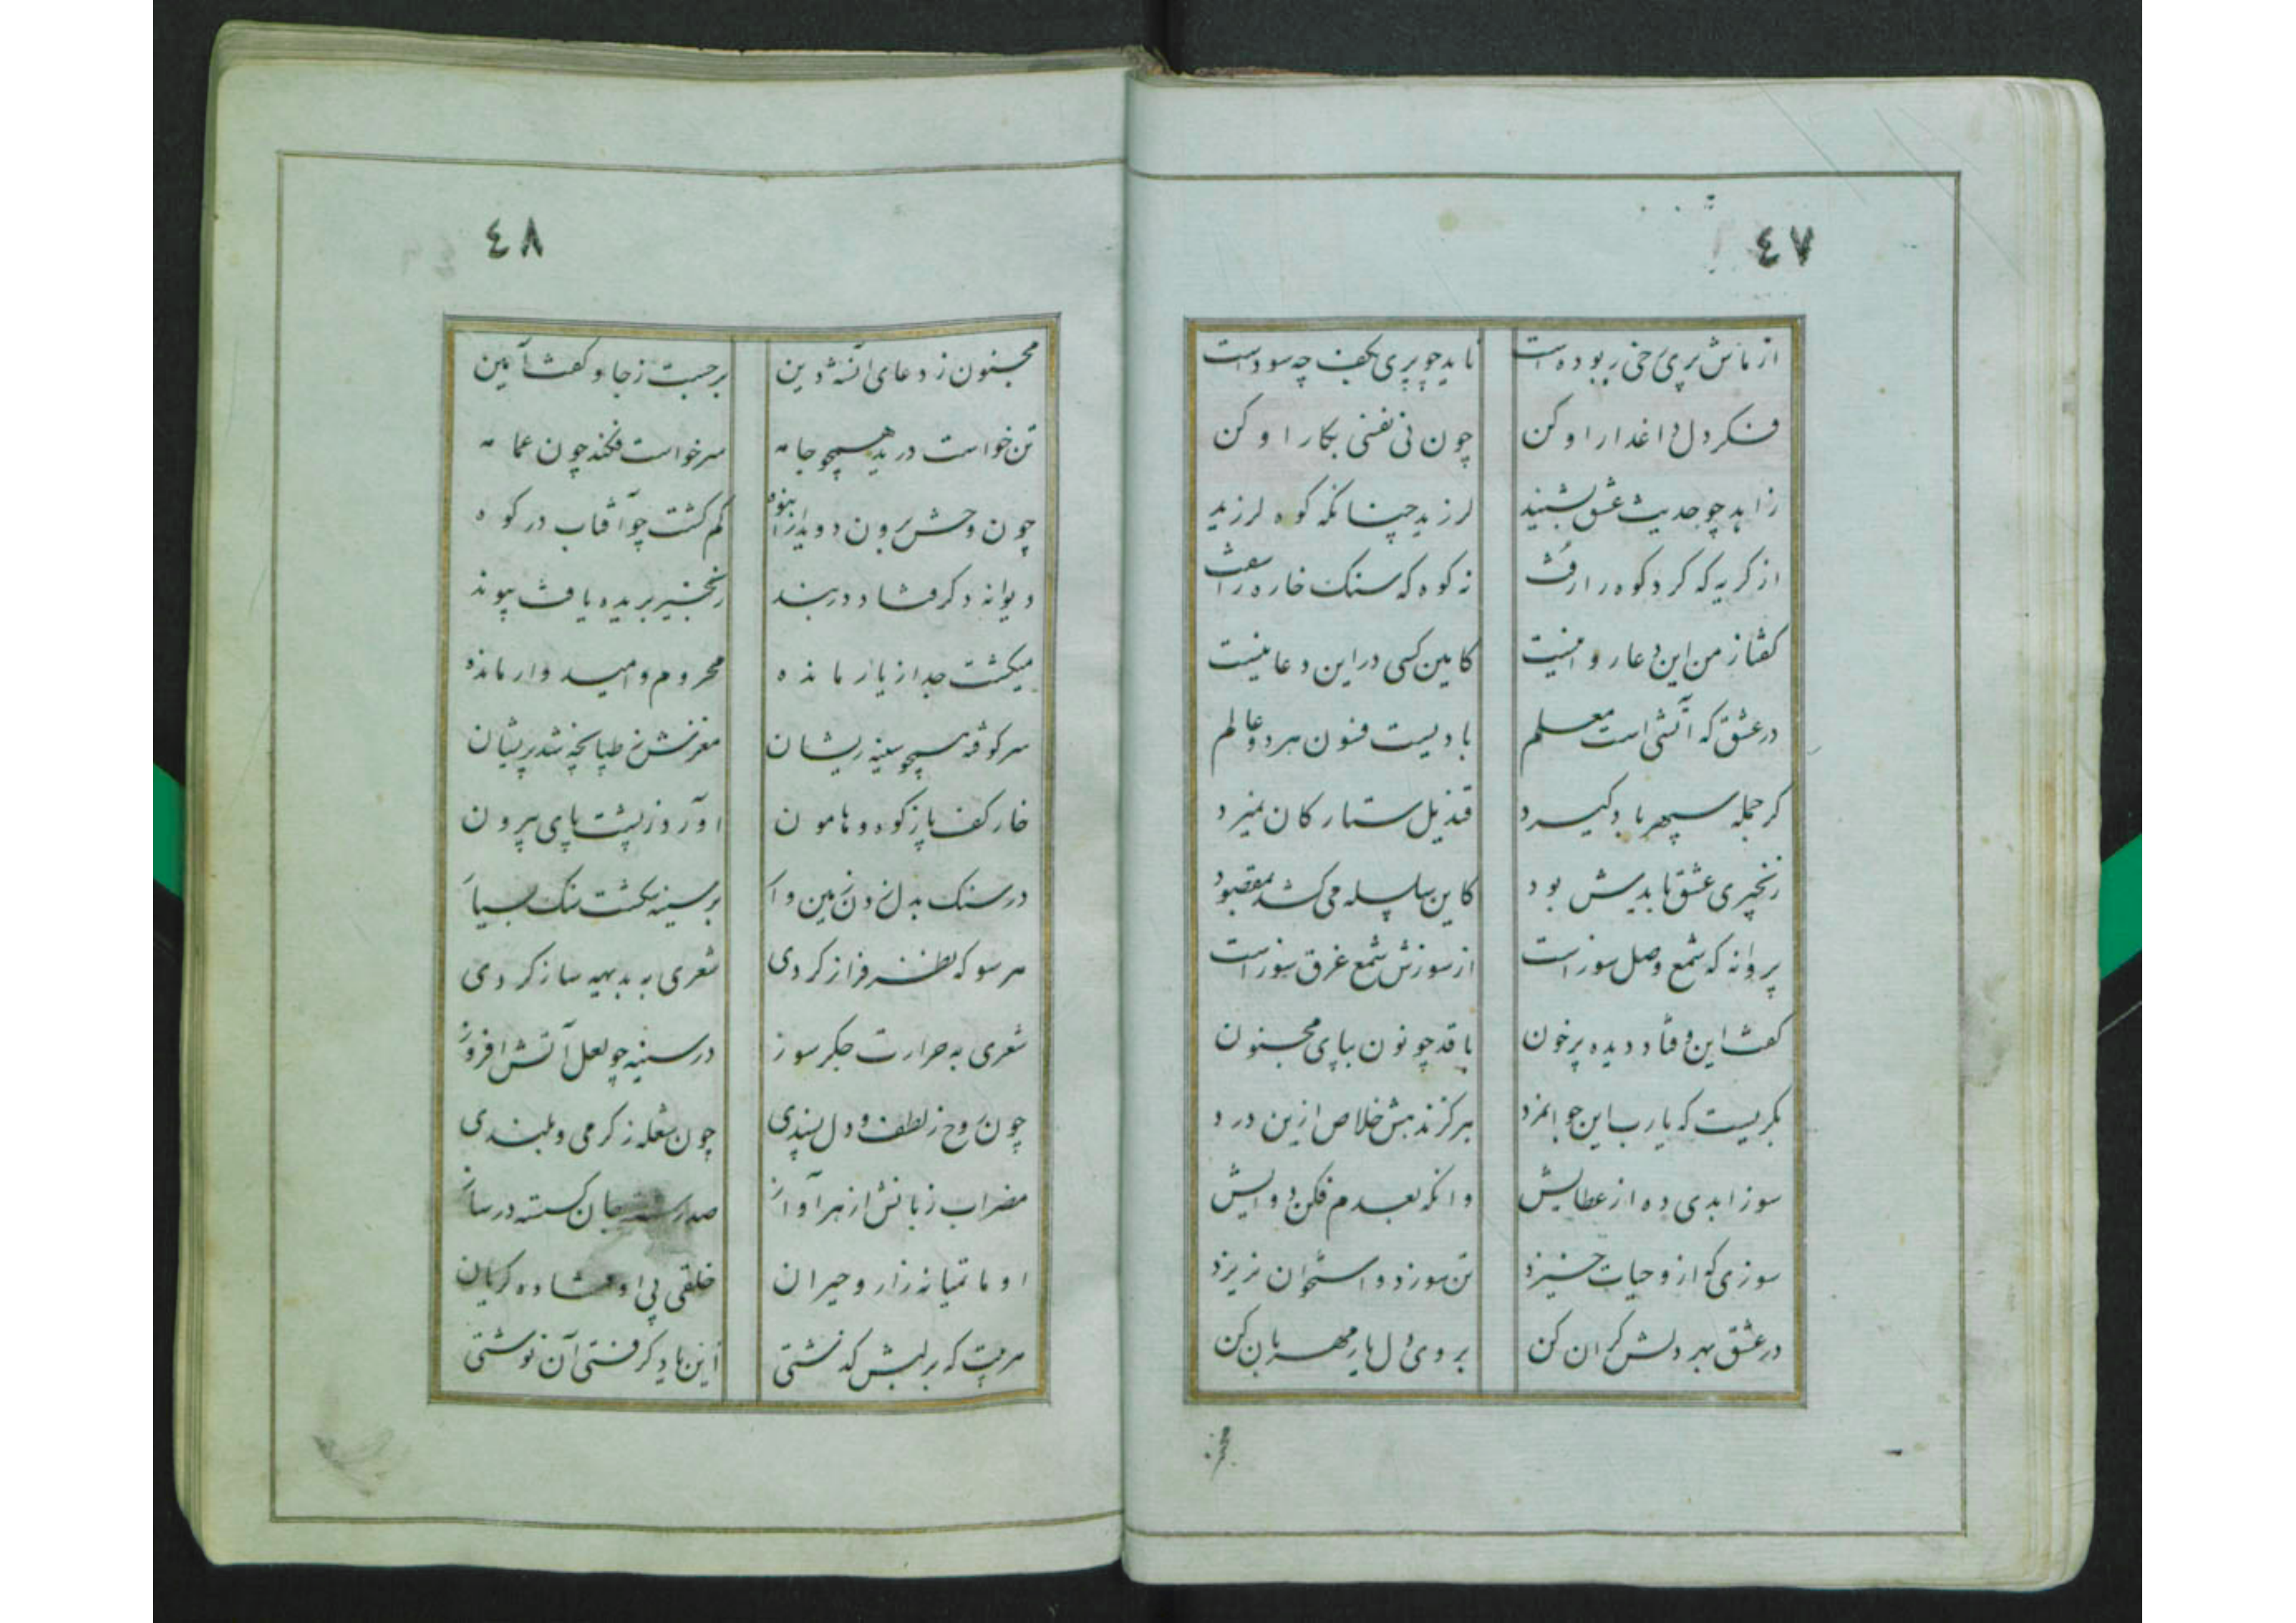 ٤٧
از ماش پری رخی ربوده است ناید چو پری بکف چه سود است
فکر دل داغدار او کن چون نی نفسی بکار او کن
زاهد چو حدیث عشق بشنید لرزید چنانکه کوه لرزید
از کریه که کرد کوه را رفت نه کوه که سنک خاره را سفت
کفتا ز من این دعا روا نیست کامین کسی در این دعا نیست
در عشق که آتشی است معلم بادیست فنون هر دو عالم
کر جمله سپهر باد کیرد قندیل ستارکان نمیرد
زنجیری عشق باید بود کاین سلسله می کشد بمقصود
پروانه که شمع وصل سوز است از سوزش شمع غرق سوز است
کفت این و فتاد دیده پر خون با قد چو نون بپای مجنون
بکریست که یارب این جوانمرد هرکز ندهش خلاص ازین درد
سوز ابدی ده از عطایش وانکه بعدم فکن دوایش
سوزی که ازو حیات خیزد تن سوزد و استخوان نریزد
در عشق بهر دلش کران کن بر وی دل یار مهربان کن
مجنون
٤٨
مجنون ز دعای آنشه دین برجست ز جا و کفت آمین
تن خواست دریدهمچو جامه سر خواست فکند چون عمامه
چون وحش برون دوید از انبوه کم کشت چو آفتاب در کوه
دیوانه دکر فتاد در بند زنجیر بریده یافت پیوند
میکشت جدا ز یار مانده محروم و امیدوار مانده
سر کوفته همچو سینه ریشان مغزش ز طپانچه شد پریشان
خار کف پا ز کوه و هامون آورد ز پشت پای بیرون
در سنک بدل زدن زمین وار بر سینه شکست سنک بسیار
هر سو که نظر فراز کردی شعری به بدیهه ساز کردی
شعری به حرارت جکر سوز در سینه چو لعل آتش افروز
چون روح ز لطف و دل پسندی چون شعله ز کرمی و بلندی
مضراب زبانش از هر آواز صد رشته جان کسسته در ساز
او ماتمیانه زار و حیران خلقی پی او فتاده کریان
هر بیت که بر لبش کذشتی این یاد کرفتی آن نوشتی